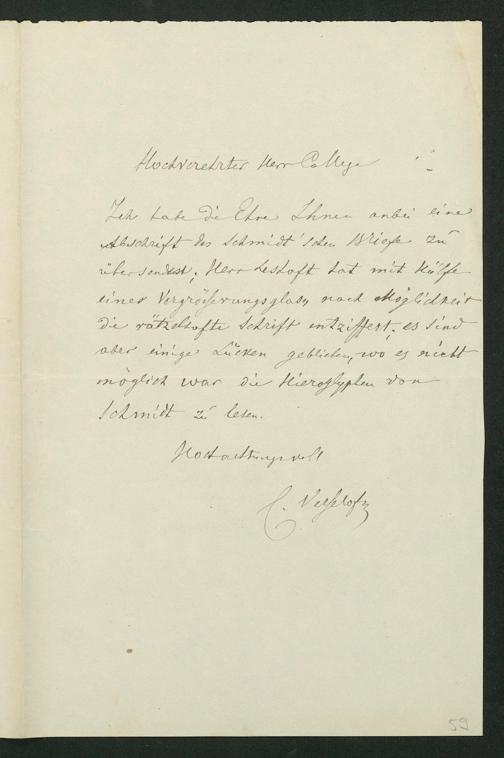 Hochverehrter Herr College
Ich habe die Ehre Ihnen anbei eine
Abschrift des Schmidt'schen Briefs zu
übersenden, Herr Leshaft hat mit Hülfe
eines Vergrößerungsglases nach Möglichkeit
die rätzelhafte Schrift entziffert; es sind
aber einige Lücken geblieben, wo es nicht
möglich war die Hieroglyphen von
Schmidt zu lesen.
Hochachtungsvoll
C.
59